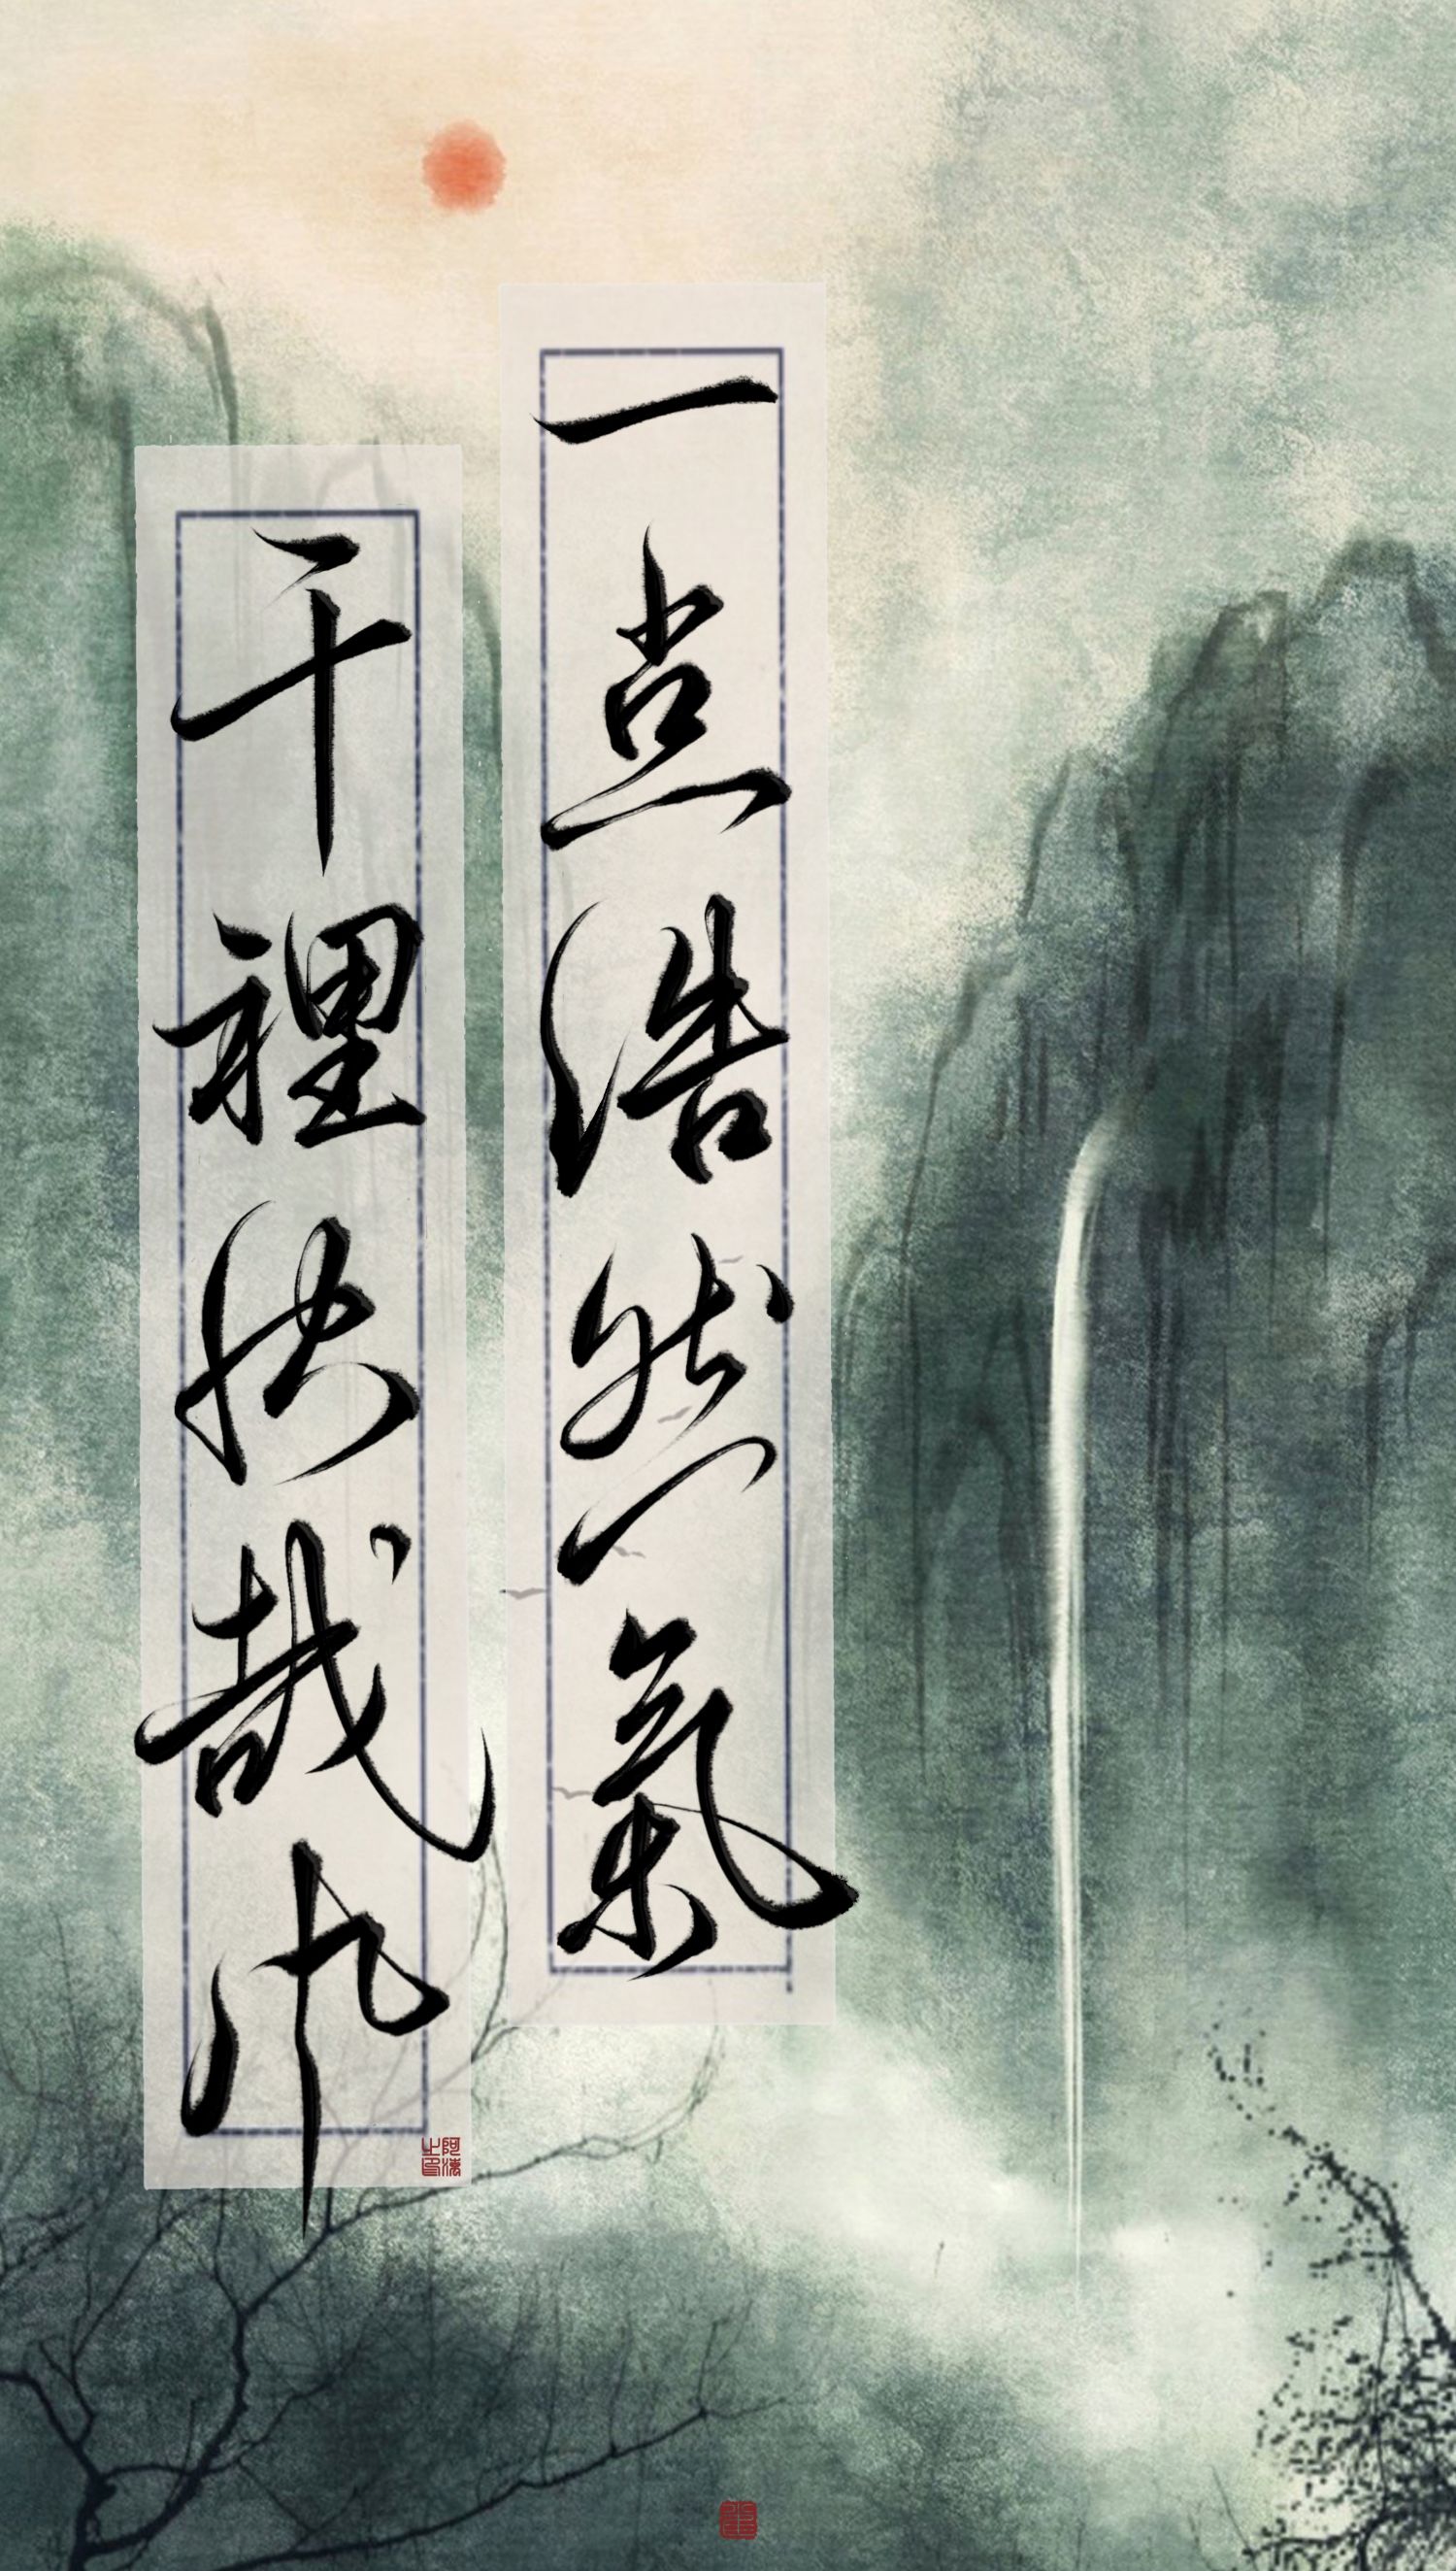 一点浩然氣
千裡快哉风